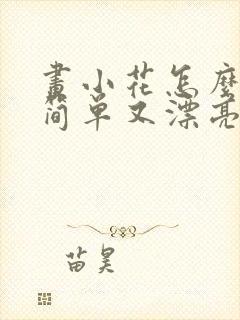 畫小花怎麼
简单又漂亮
苗昊